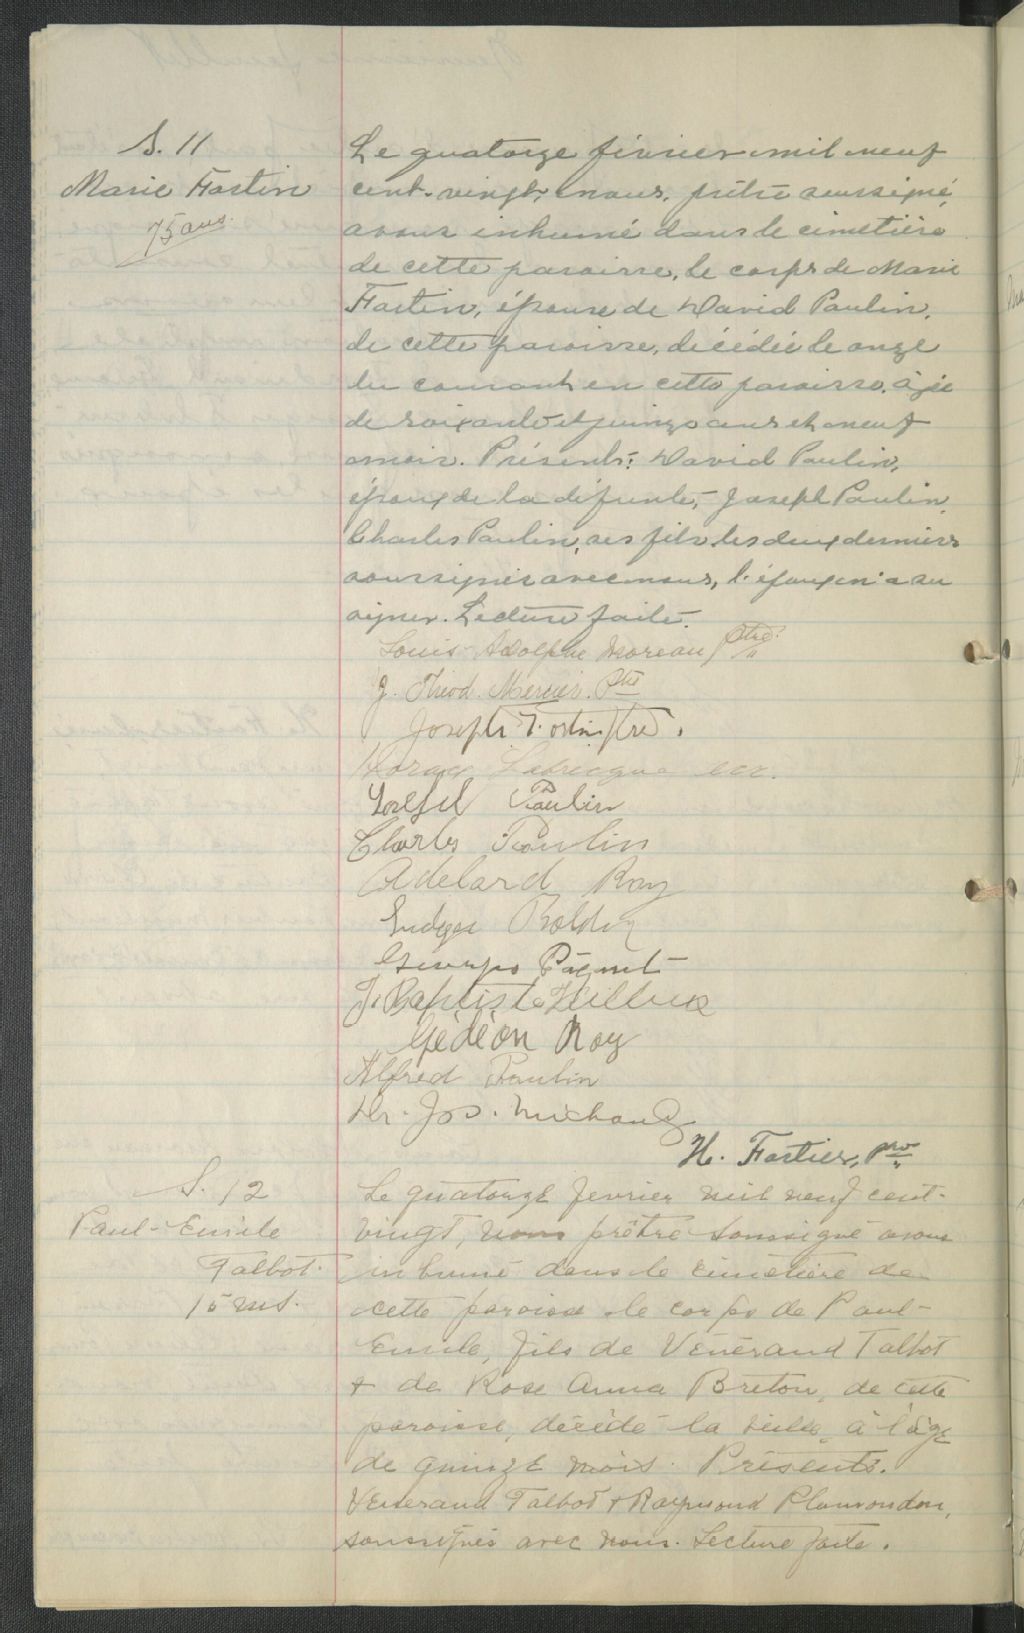 S. 11
Marie Fortin
75 ans.
Le quatorze février mil neuf
cent-vingt, nous, prêtre soussigné,
avons inhumé dans le cimetière
de cette paroisse, le corps de Marie
Fortin, épouse de David Paulin,
de cette paroisse, décédée le onze
du courant en cette paroisse, âgée
de soixante et quinze ans et neuf
mois. Présents: David Paulin,
époux de la défunte, Joseph Paulin,
Charles Paulin, ses fils, les deux derniers
soussignés avec nous, l'époux n'a su
signer. Lecture faite.
Louis-Adolphe Moreau, Ptre
J. Théod. Mercier. Ptre
Joseph Fortin ptre.
Labrecque ecc.
Josefil Paulin
Charles Paulin
Adelard Roy
Bolduc
Paquet
J. Baptiste
Gédéon Roy
Alfred Paulin
Dr. Jos. Michaud
H. Fortier, pre
S. 12
Paul-Emile
Talbot.
15 ms.
Le quatorze fevrier mil neuf cent-
vingt, nous prêtre soussigné avons
inhumé dans le cimetière de
cette paroisse le corps de Paul-
Emile, fils de Vénérand Talbot
& de Rose Anna Breton, de cette
paroisse, décédé la veille, à l'âge
de quinze mois. Présents.
Venerand Talbot & Raymond Plamondon,
soussignés avec nous. Lecture faite.